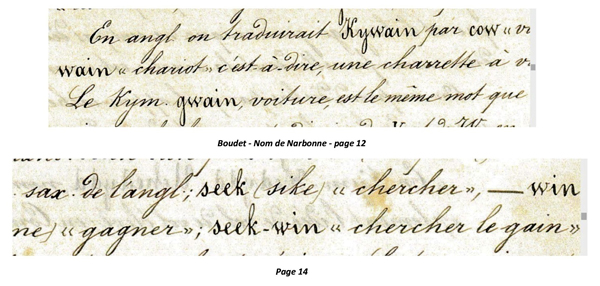 En angl. on traduirait Kywain par cow «
wain « chariot » c'est-à-dire, une charrette à
Le Kym. gwain, voiture, est le même mot que
Boudet - Nom de Narbonne - page 12
sax. de l'angl.; seek (sike) « chercher », — win
ne) « gagner »; seek-win « chercher le gain »
Page 14